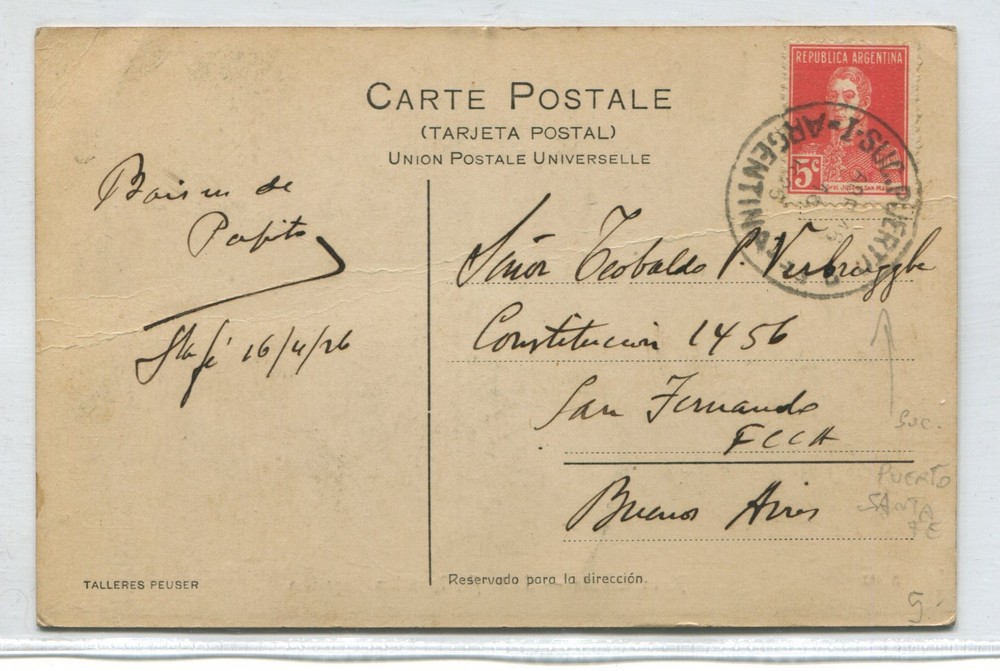 CARTE POSTALE
(TARJETA POSTAL)
UNION POSTALE UNIVERSELLE
REPUBLICA ARGENTINA
5c
SUC. PUERTO
ARGENTINA
de
Papito
Sta fé 16/4/26
Señor Teobaldo P. Verbrugghe
Constitucion 1456
San Fernando
FCCA
Buenos Aires
Suc.
PUERTO
SANTA
FE
TALLERES PEUSER
Reservado para la dirección.
5